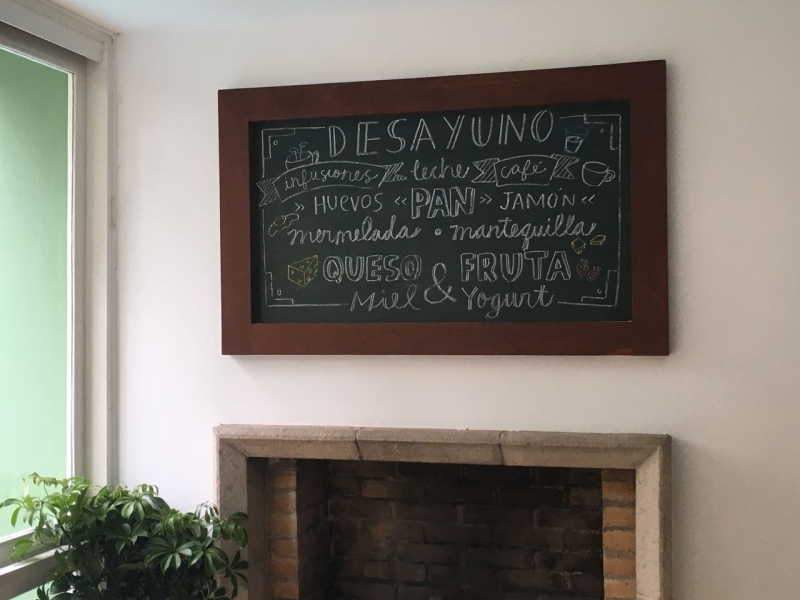 DESAYUNO
infusiones leche café
» HUEVOS «PAN» JAMÓN «
mermelada • mantequilla
QUESO & FRUTA
Miel Yogurt